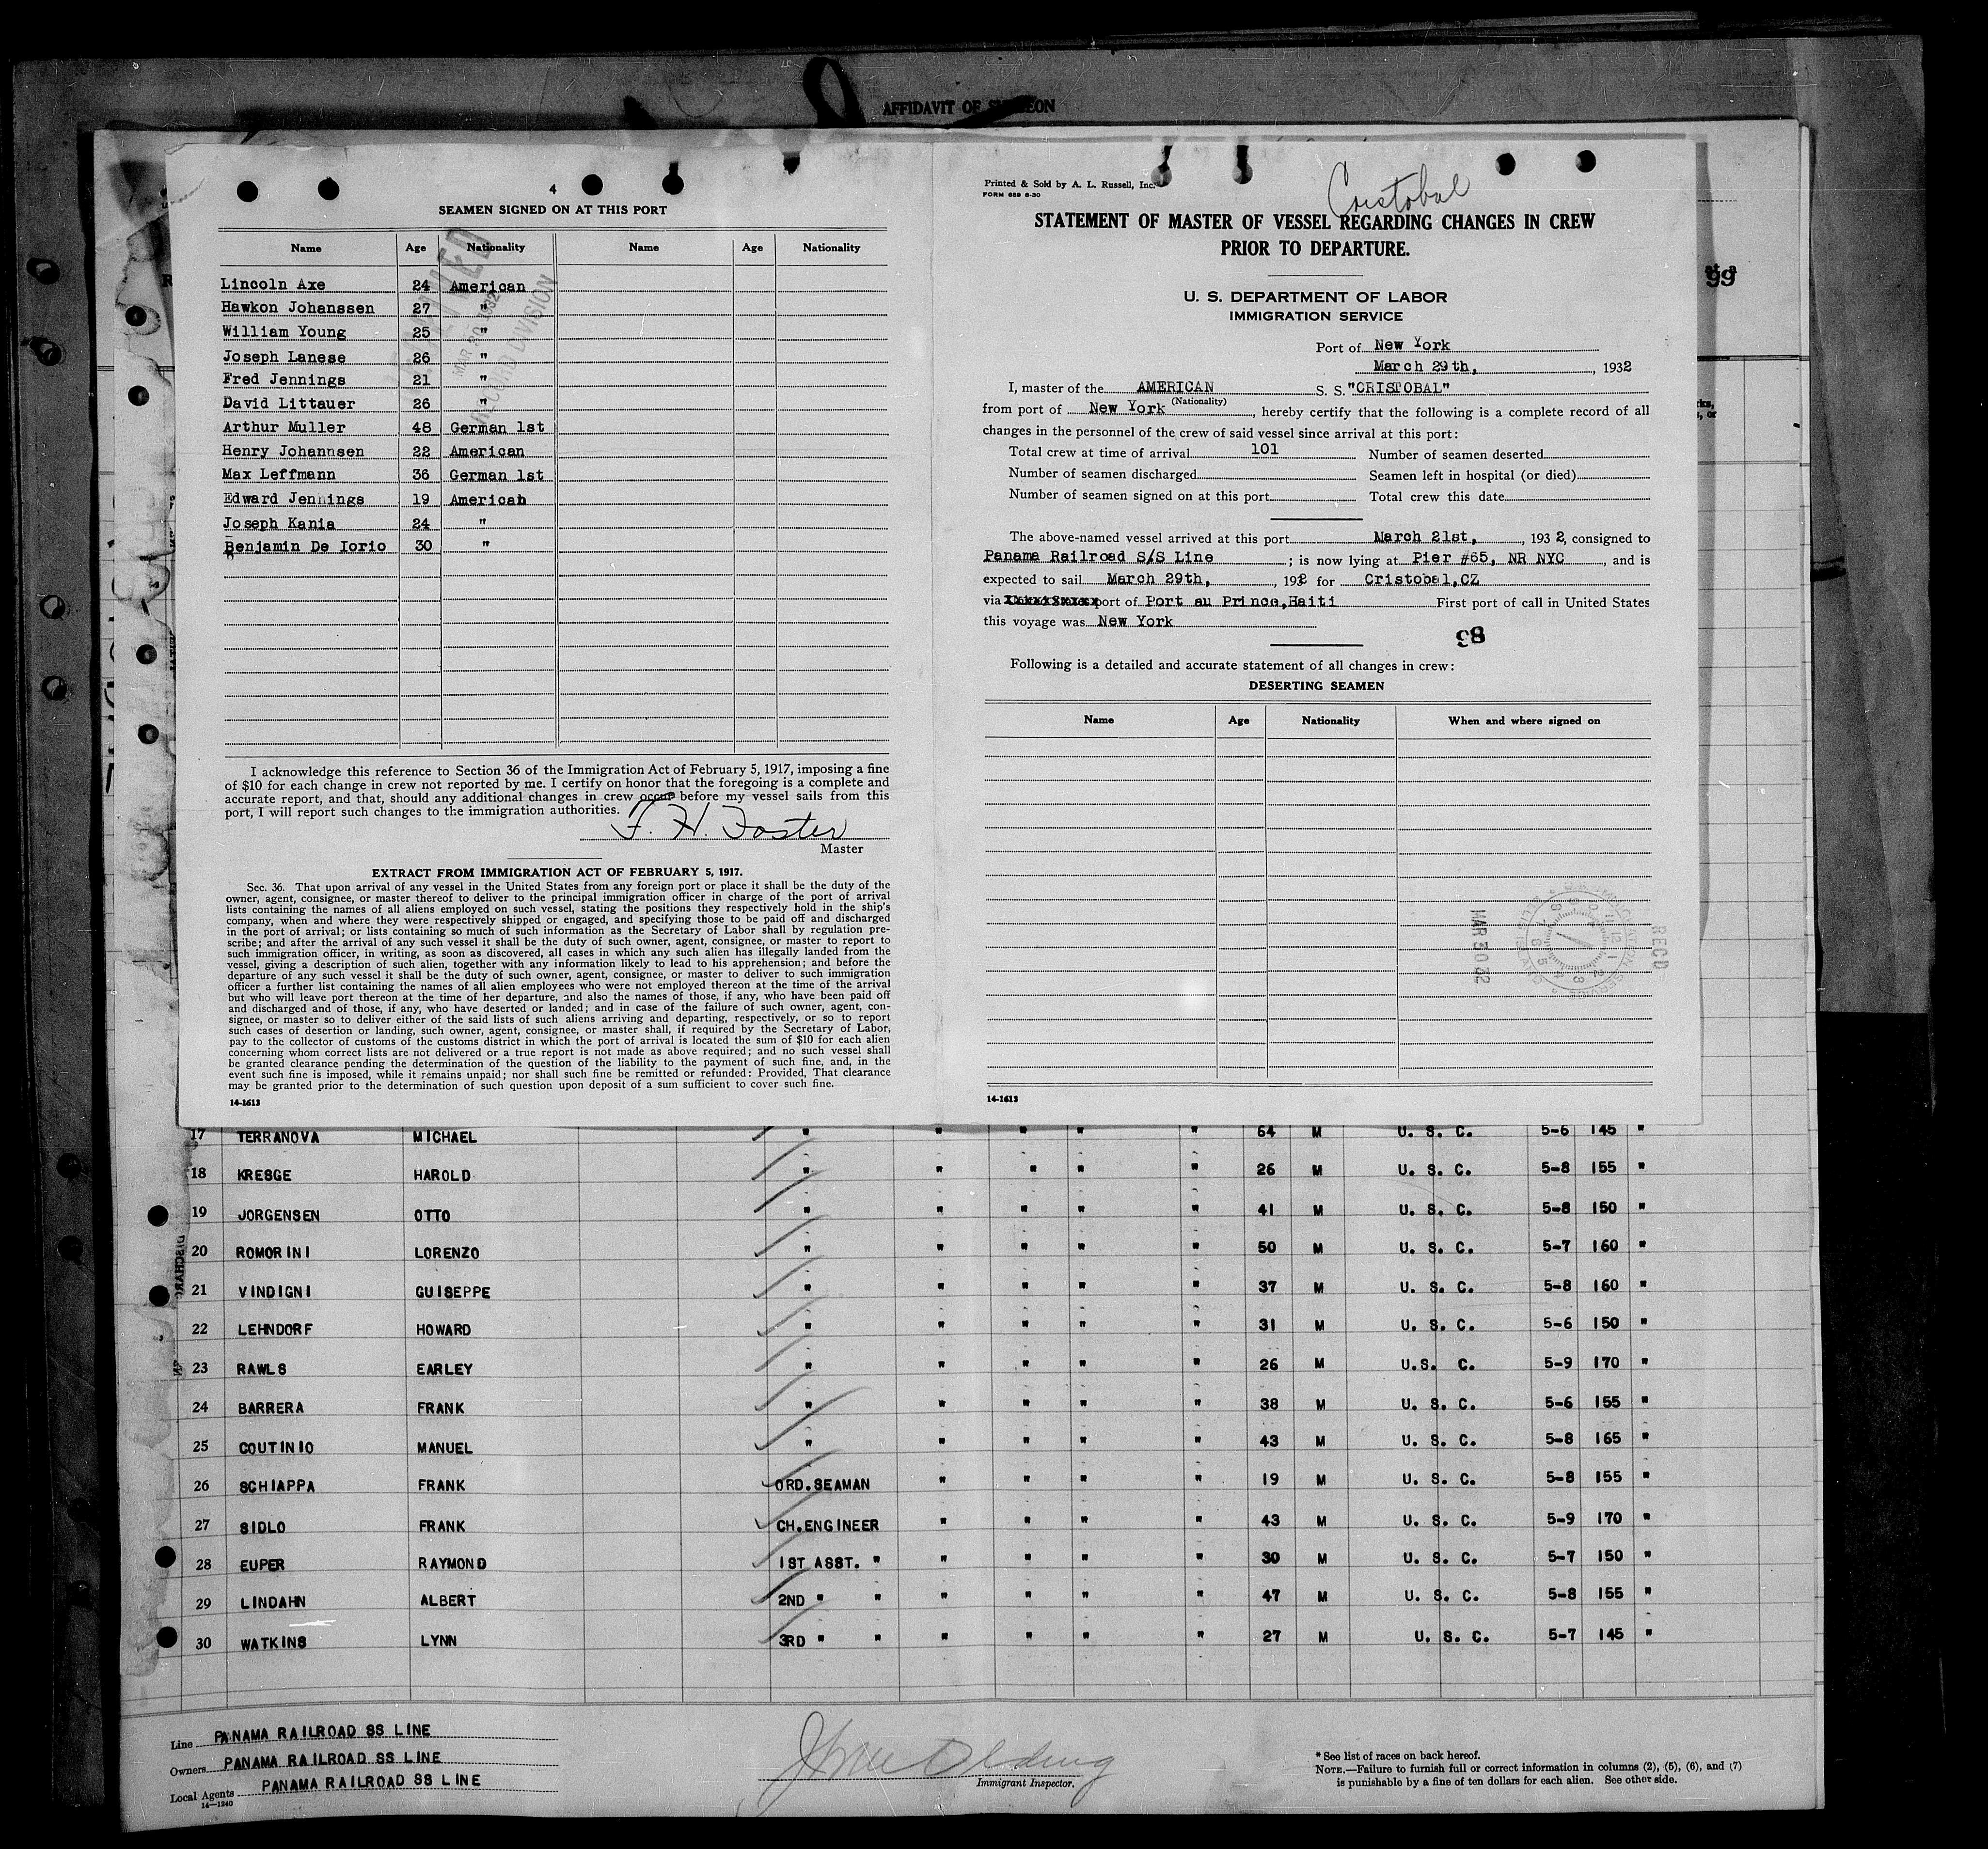 AFFIDAVIT OF
4
SEAMEN SIGNED ON AT THIS PORT
Name Age Nationality Name Age Nationality
Lincoln Axe 24 American
Hawkon Johanssen 27 "
William Young 25 "
Joseph Lanese 26 "
Fred Jennings 21 "
David Littauer 26 "
Arthur Muller 48 German 1st
Henry Johannsen 22 American
Max Leffmann 36 German 1st
Edward Jennings 19 American
Joseph Kania 24 "
Benjamin De Iorio 30 "
I acknowledge this reference to Section 36 of the Immigration Act of February 5, 1917, imposing a fine
of $10 for each change in crew not reported by me. I certify on honor that the foregoing is a complete and
accurate report, and that, should any additional changes in crew occur before my vessel sails from this
port, I will report such changes to the immigration authorities.
F. H. Foster
Master
EXTRACT FROM IMMIGRATION ACT OF FEBRUARY 5, 1917.
Sec. 36. That upon arrival of any vessel in the United States from any foreign port or place it shall be the duty of the
owner, agent, consignee, or master thereof to deliver to the principal immigration officer in charge of the port of arrival
lists containing the names of all aliens employed on such vessel, stating the positions they respectively hold in the ship's
company, when and where they were respectively shipped or engaged, and specifying those to be paid off and discharged
in the port of arrival; or lists containing so much of such information as the Secretary of Labor shall by regulation pre-
scribe; and after the arrival of any such vessel it shall be the duty of such owner, agent, consignee, or master to report to
such immigration officer, in writing, as soon as discovered, all cases in which any such alien has illegally landed from the
vessel, giving a description of such alien, together with any information likely to lead to his apprehension; and before the
departure of any such vessel it shall be the duty of such owner, agent, consignee, or master to deliver to such immigration
officer a further list containing the names of all alien employees who were not employed thereon at the time of the arrival
but who will leave port thereon at the time of her departure, and also the names of those, if any, who have been paid off
and discharged and of those, if any, who have deserted or landed; and in case of the failure of such owner, agent, con-
signee, or master so to deliver either of the said lists of such aliens arriving and departing, respectively, or so to report
such cases of desertion or landing, such owner, agent, consignee, or master shall, if required by the Secretary of Labor,
pay to the collector of customs of the customs district in which the port of arrival is located the sum of $10 for each alien
concerning whom correct lists are not delivered or a true report is not made as above required; and no such vessel shall
be granted clearance pending the determination of the question of the liability to the payment of such fine, and, in the
event such fine is imposed, while it remains unpaid; nor shall such fine be remitted or refunded: Provided, That clearance
may be granted prior to the determination of such question upon deposit of a sum sufficient to cover such fine.
14-1613
Printed & Sold by A. L. Russell, Inc.
FORM 689 6-30
Cristobal
STATEMENT OF MASTER OF VESSEL REGARDING CHANGES IN CREW
PRIOR TO DEPARTURE.
U. S. DEPARTMENT OF LABOR
IMMIGRATION SERVICE
Port of New York
March 29th, , 1932
I, master of the AMERICAN S. S. "CRISTOBAL"
(Nationality)
from port of New York , hereby certify that the following is a complete record of all
changes in the personnel of the crew of said vessel since arrival at this port:
Total crew at time of arrival 101 Number of seamen deserted
Number of seamen discharged Seamen left in hospital (or died)
Number of seamen signed on at this port Total crew this date
The above-named vessel arrived at this port March 21st, , 1932, consigned to
Panama Railroad S/S Line ; is now lying at Pier #65, NR NYC , and is
expected to sail March 29th, , 1932 for Cristobal,CZ
via port of Port au Prince,Haiti First port of call in United States
this voyage was New York
98
Following is a detailed and accurate statement of all changes in crew:
DESERTING SEAMEN
Name Age Nationality When and where signed on
REC'D
MAR 30 32
14-1613
99
17 TERRANOVA MICHAEL " " " " " 64 M U. S. C. 5-6 145 "
18 KRESGE HAROLD " " " " " 26 M U. S. C. 5-8 155 "
19 JORGENSEN OTTO " " " " " 41 M U. S. C. 5-8 150 "
20 ROMORINI LORENZO " " " " " 50 M U. S. C. 5-7 160 "
21 VINDIGNI GUISEPPE " " " " " 37 M U. S. C. 5-8 160 "
22 LEHNDORF HOWARD " " " " " 31 M U. S. C. 5-6 150 "
23 RAWLS EARLEY " " " " " 26 M U.S. C. 5-9 170 "
24 BARRERA FRANK " " " " " 38 M U. S. C. 5-6 155 "
25 COUTINIO MANUEL " " " " " 43 M U. S. C. 5-8 165 "
26 SCHIAPPA FRANK ORD.SEAMAN " " " " 19 M U. S. C. 5-8 155 "
27 SIDLO FRANK CH.ENGINEER " " " " 43 M U. S. C. 5-9 170 "
28 EUPER RAYMOND 1ST ASST. " " " " " 30 M U. S. C. 5-7 150 "
29 LINDAHN ALBERT 2ND " " " " " " 47 M U. S. C. 5-8 155 "
30 WATKINS LYNN 3RD " " " " " " 27 M U. S. C. 5-7 145 "
Line PANAMA RAILROAD SS LINE
Owners PANAMA RAILROAD SS LINE
Local Agents PANAMA RAILROAD SS LINE
14-1240
Immigrant Inspector.
* See list of races on back hereof.
NOTE.—Failure to furnish full or correct information in columns (2), (5), (6), and (7)
is punishable by a fine of ten dollars for each alien. See other side.